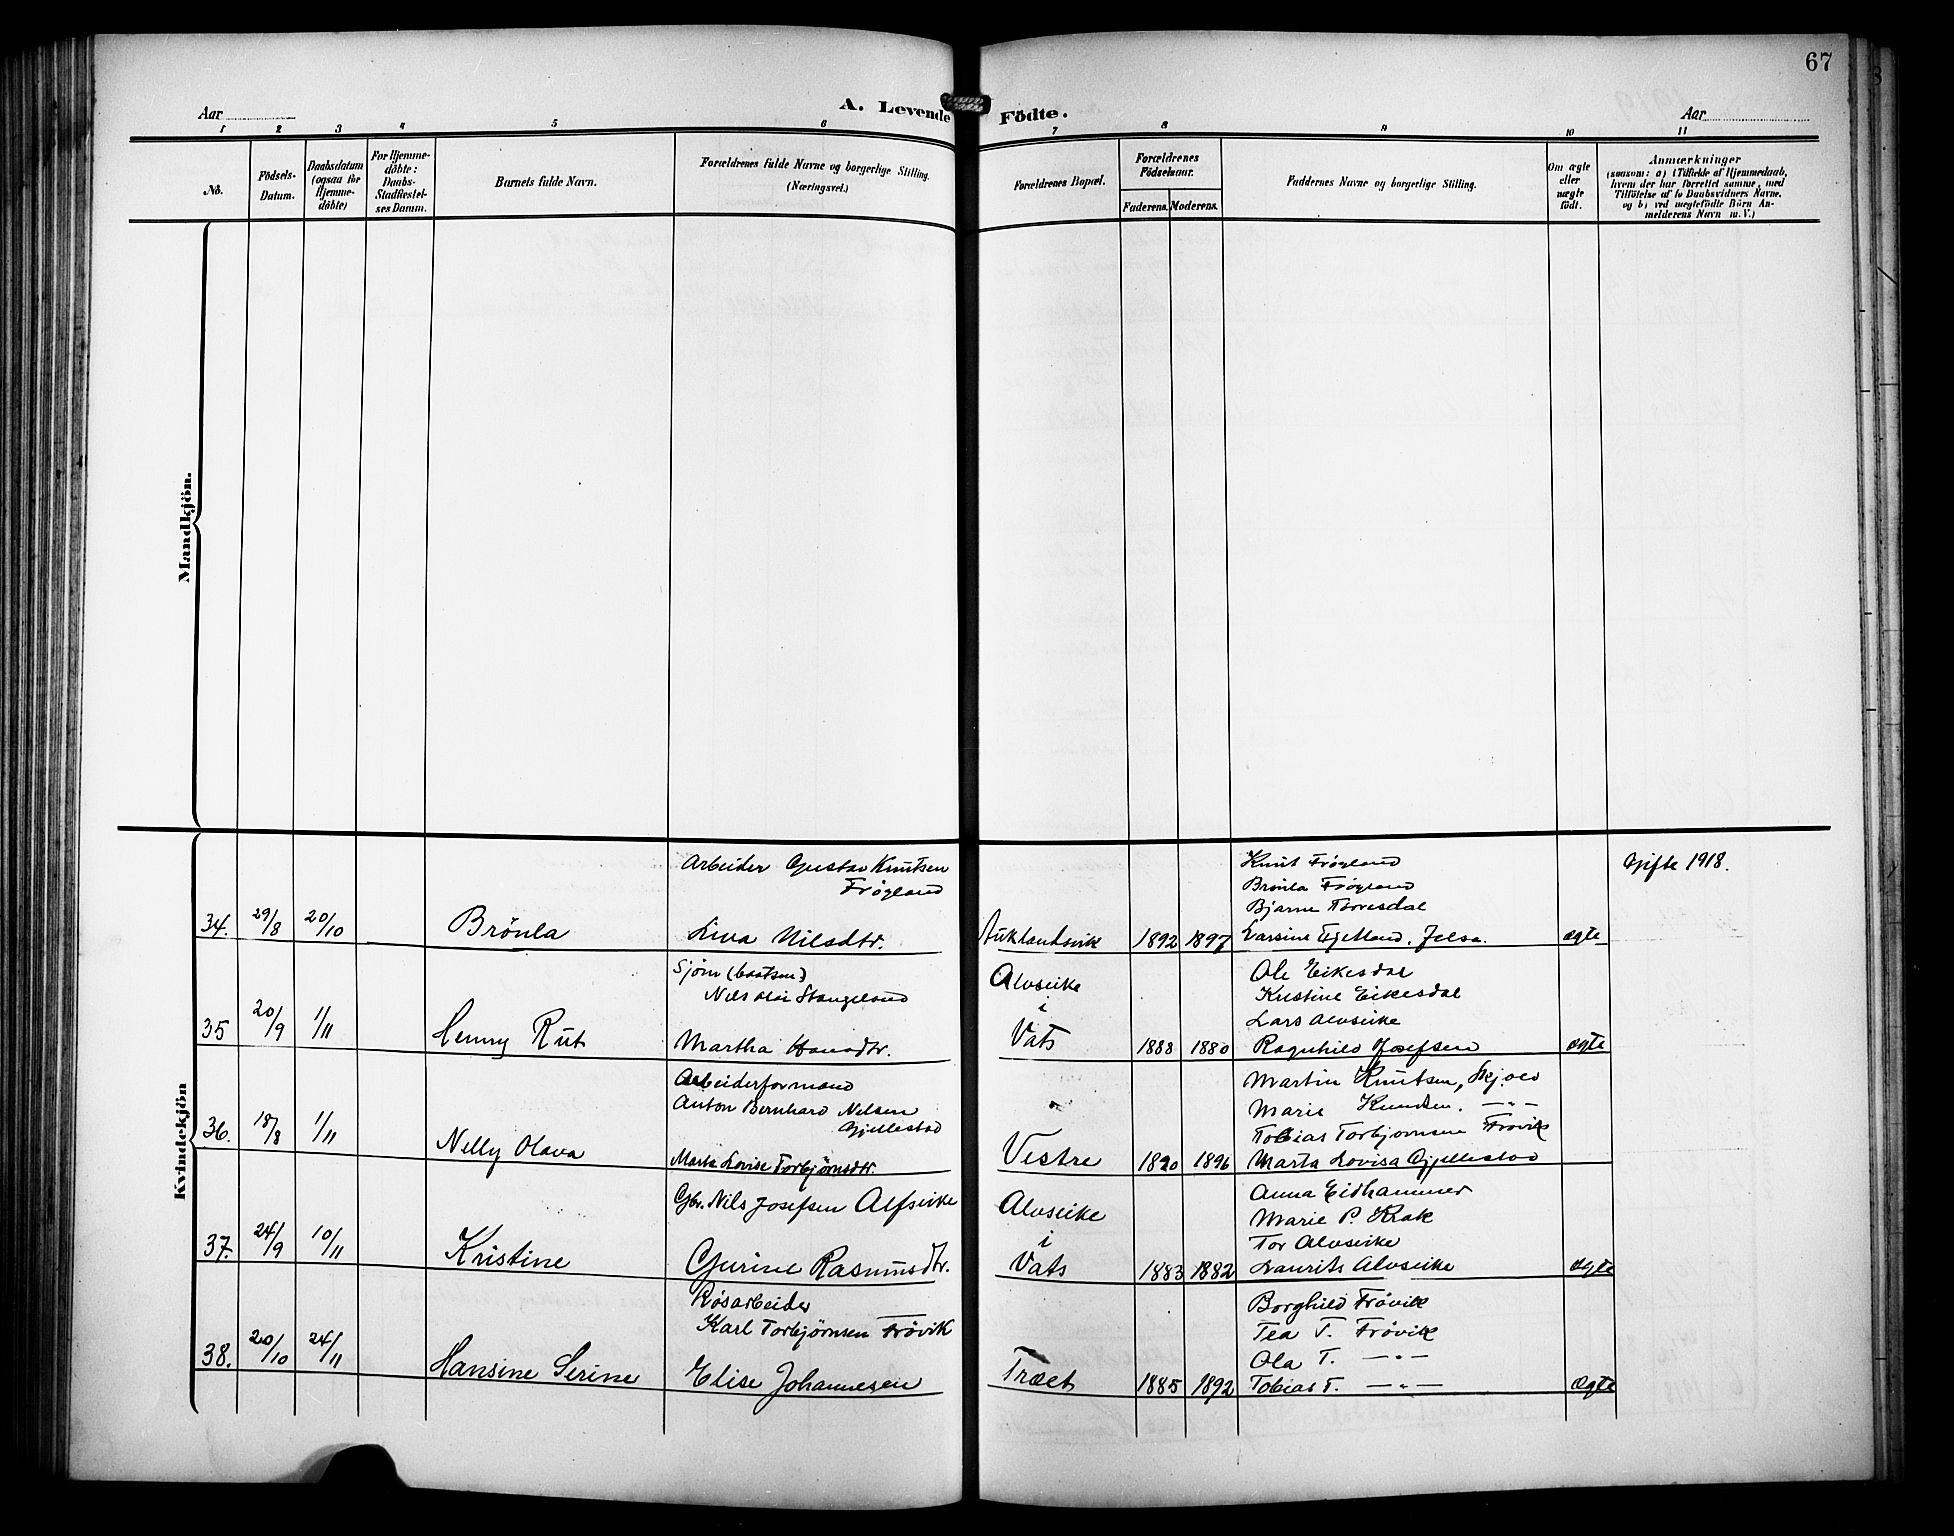 67
Aar
A. Levende Födte.
Aar
1 2 3 4 5 6 7 8 9 10 11
No.
Födsels-Datum.
Daabsdatum (ogsaa för Hjemme-döbte)
For Hjemme-döbte: Daabs-Stadfæstel-ses Datum.
Barnets fulde Navn.
Forældrenes fulde Navne og borgerlige Stilling. (Næringsvei.)
Forældrenes Bopæl.
Forældrenes Födselsaar.
Faderens. Moderens.
Faddernes Navne og borgerlige Stilling.
Om ægte eller uægte födt.
Anmærkninger
(saasom: a) i Tilfælde af Hjemmedaab,
hvem der har forrettet samme, med
Tilföielse af to Daabsvidners Navne,
og b) ved uægtefödte Börn An-
melderens Navn m. V.)
Mandkjön.
Kvindekjön
Arbeider Gustav Knutsen
Frøgland
Knut Frøgland
Gifte 1918.
Brønla Frøgland
Bjarne Torvesdal
34. 29/8 20/10 Brönla
Liva Nilsdtr. Auklandsvik 1892 1897 Larsine Fjetland. Jelsa. ægte
Sjøm
Nils Olai Stangeland
Alvseike
i
Vats
Ole Eikesdal
Kristine Eikesdal
Lars Alvseike
35 20/9 1/11 Henny Rut
Martha Hansdtr. 1888 1880 Ragnhild Josefsen ægte
Arbeiderformand
Anton Bernhard Nelsen
Gjellestad
Martin Knutsen, Skjold
Marie Knudsen. —"—
Tobias Torbjornsen Frøvik
36. 18/8 1/11 Nelly Olava
Marta Lovise Torbjørnsdtr. Vestre 1890 1896 Marta Lovisa Gjellestad
Gbr. Nils Josefsen Alfseike
Alvseike
i
Vats
Anna Eidhammer
Marie P. Krak
Tor Alvseike
37. 24/9 10/11 Kristine
Gurine Rasmusdtr. 1883 1882 Laurits Alvseike ægte
Røsarbeider
Karl Torbjørnsen Frövik
Borghild Frøvik
Tea T. Frøvik
Ola T. —"—
38. 20/10 24/11 Hansine Serine
Elise Johannesen Træet 1885 1892 Tobias T. —"— Ægte